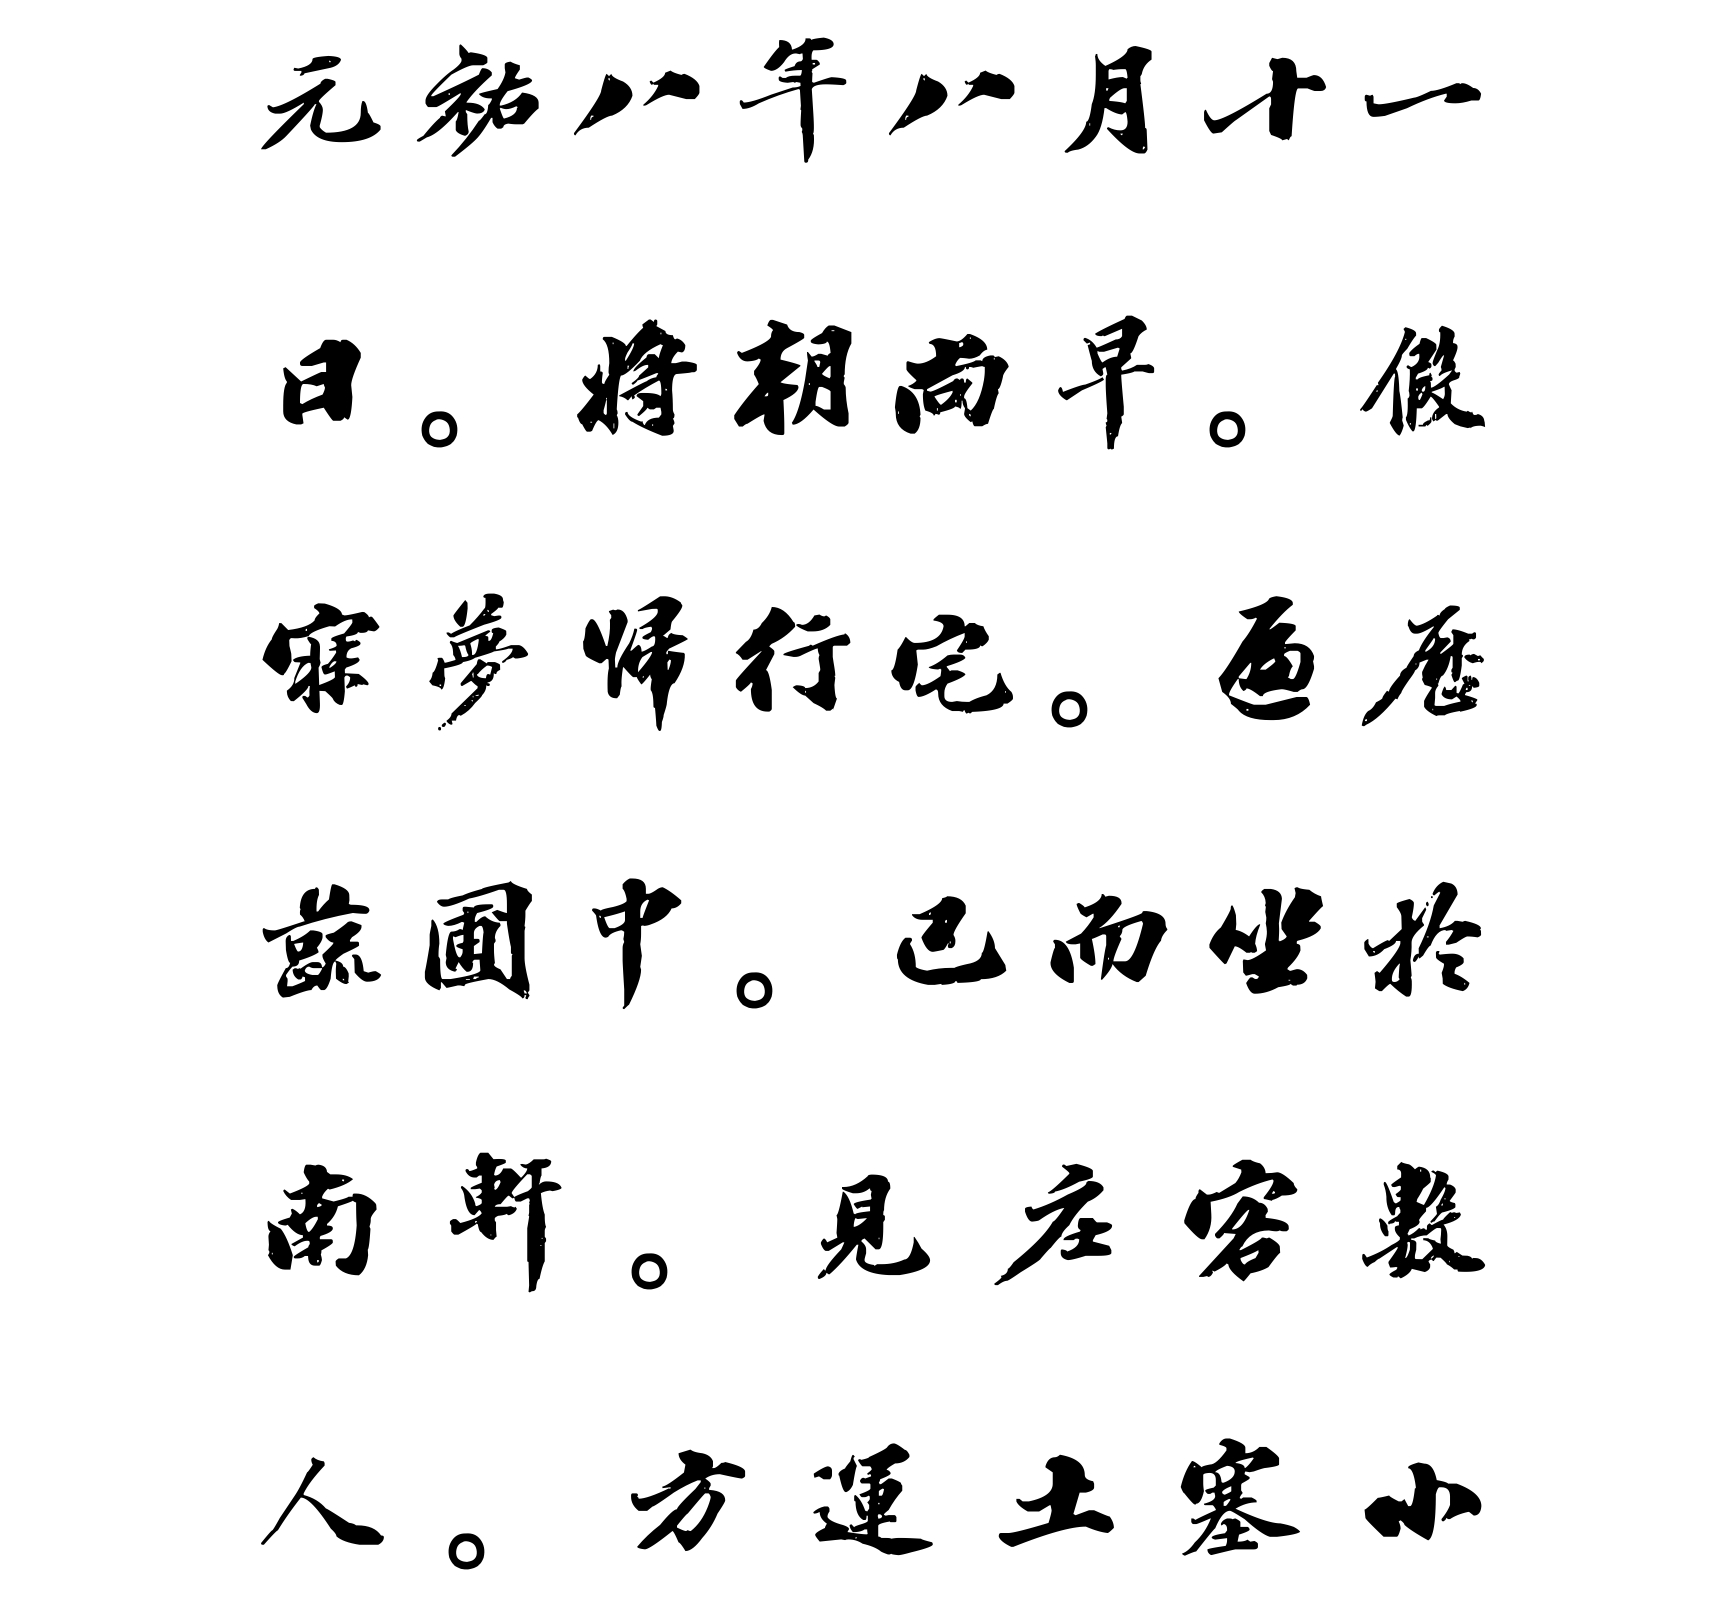 元祐八年八月十一
日。將朝尚早。假
寐夢帰行宅。遍歷
蔬圃中。已而坐於
南軒。見庄客數
人。方運土塞小